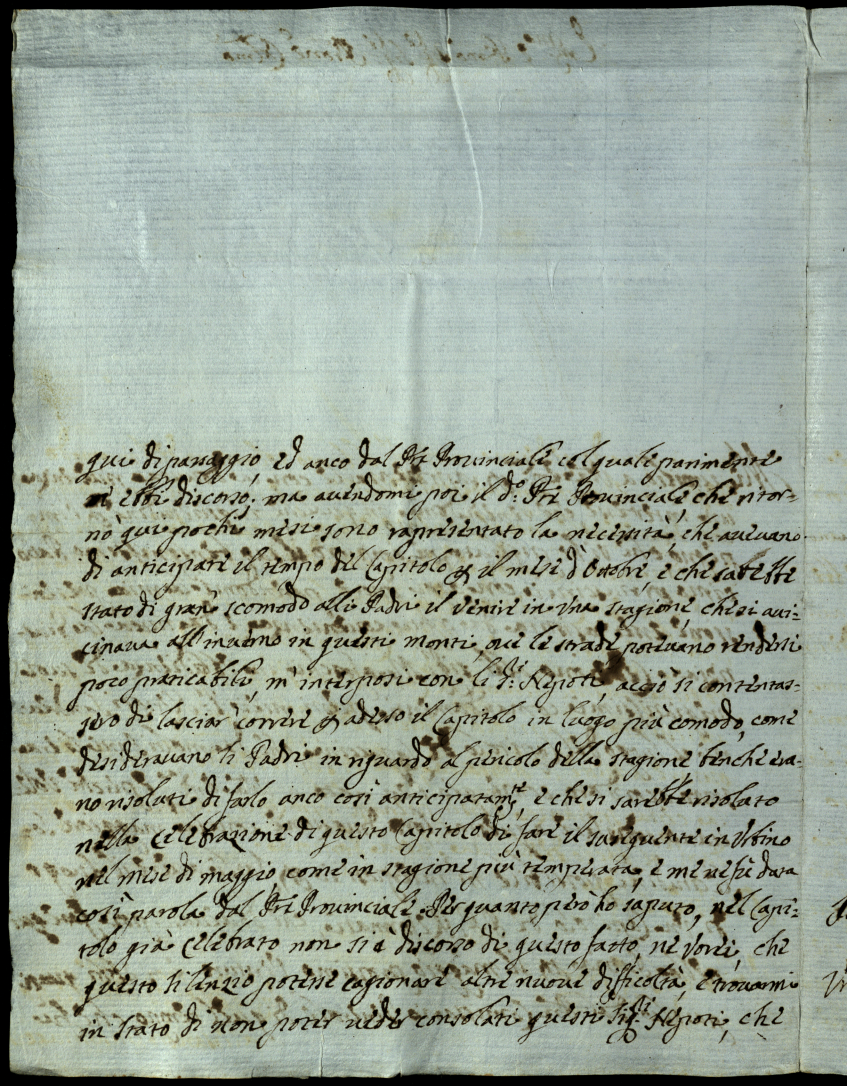 qui di passaggio, ed anco dal Pre Provinciale col quale parimente
ebbi discorso; ma avendomi poi il do: Pre Provinciale, che ritor=
nò qui pochi mesi sono rapresentato la necessità, che avevano
di anticipare il tempo del Capitolo p il mese d'Ottobre, e che sarebbe
stato di gran scomodo alli Padri il venire in una stagione, che si avi=
cinava all'inverno in questi monti, ove le strade potevano rendersi
poco praticabili, m'interposi con li Sri Nepoti, acciò si contentas=
sero di lasciar correre p adesso il Capitolo in luogo più comodo, come
desideravano li Padri in riguardo al pericolo della stagione benche era=
no risoluti di farlo anco così anticipatamte, e che si sarebbe risolato
nella Celebrazione di questo Capitolo di fare il susseguente in Urbino
nel mese di maggio, come in stagione più temperata, e me ne fù data
così parola dal Pre Provinciale. Per quanto però ho saputo, nel Capi=
tolo già Celebrato non si è discorso di questo fatto, ne vorei, che
questo silenzio potesse cagionare altre nuove difficoltà, e trovarmi
in stato di non poter veder consolati questi Sigri Nepoti, che